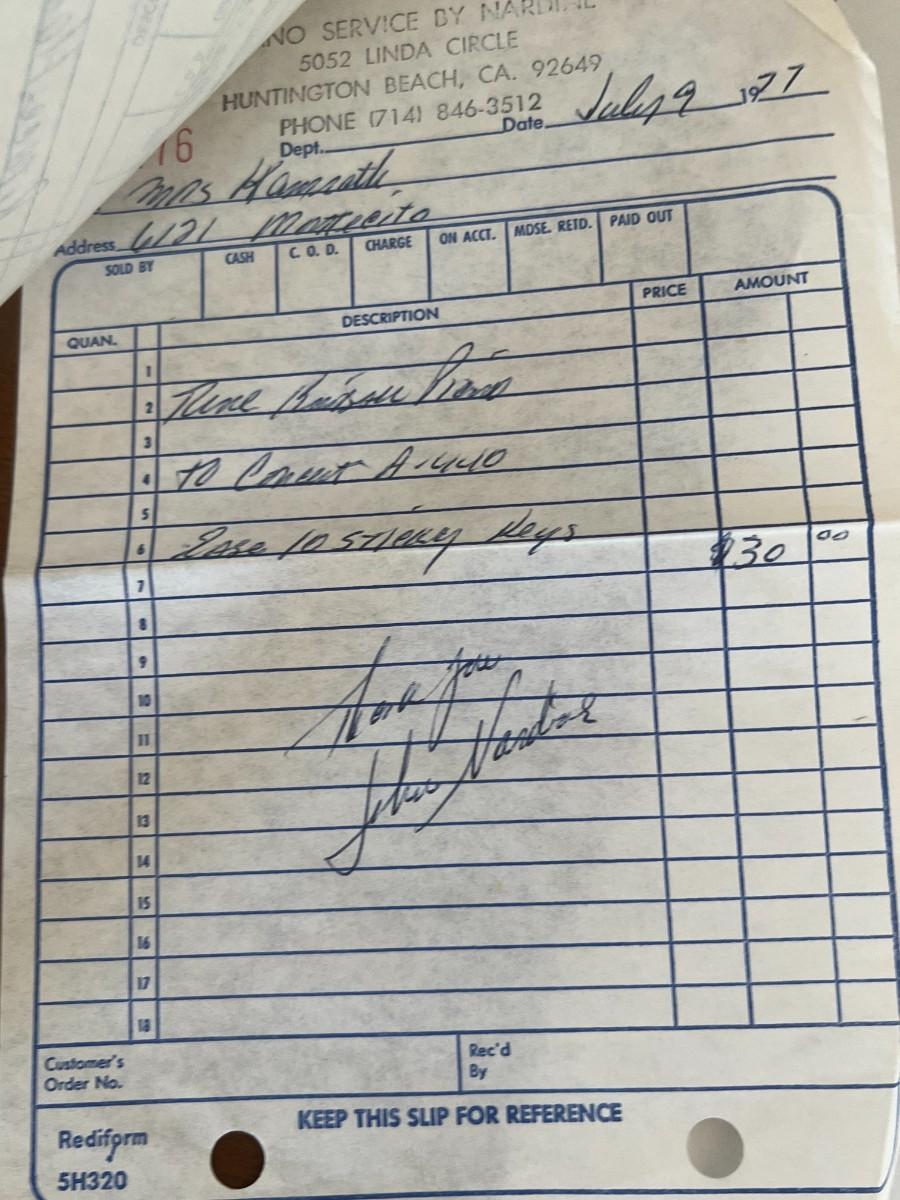 NO SERVICE BY NARDINE
5052 LINDA CIRCLE
HUNTINGTON BEACH, CA. 92649
PHONE (714) 846-3512
Dept. Date July 9 1977
76
Mrs
Address 6121
SOLD BY CASH C. O. D. CHARGE ON ACCT. MDSE. RETD. PAID OUT
QUAN. DESCRIPTION PRICE AMOUNT
1
2 Tune Piano
3
4 to Concert A-440
5
6 Ease 10 Sticky Keys $30 00
7
8
9
10 Thank you
11 John
12
13
14
15
16
17
18
Customer's
Order No.
Rec'd
By
KEEP THIS SLIP FOR REFERENCE
Rediform
5H320